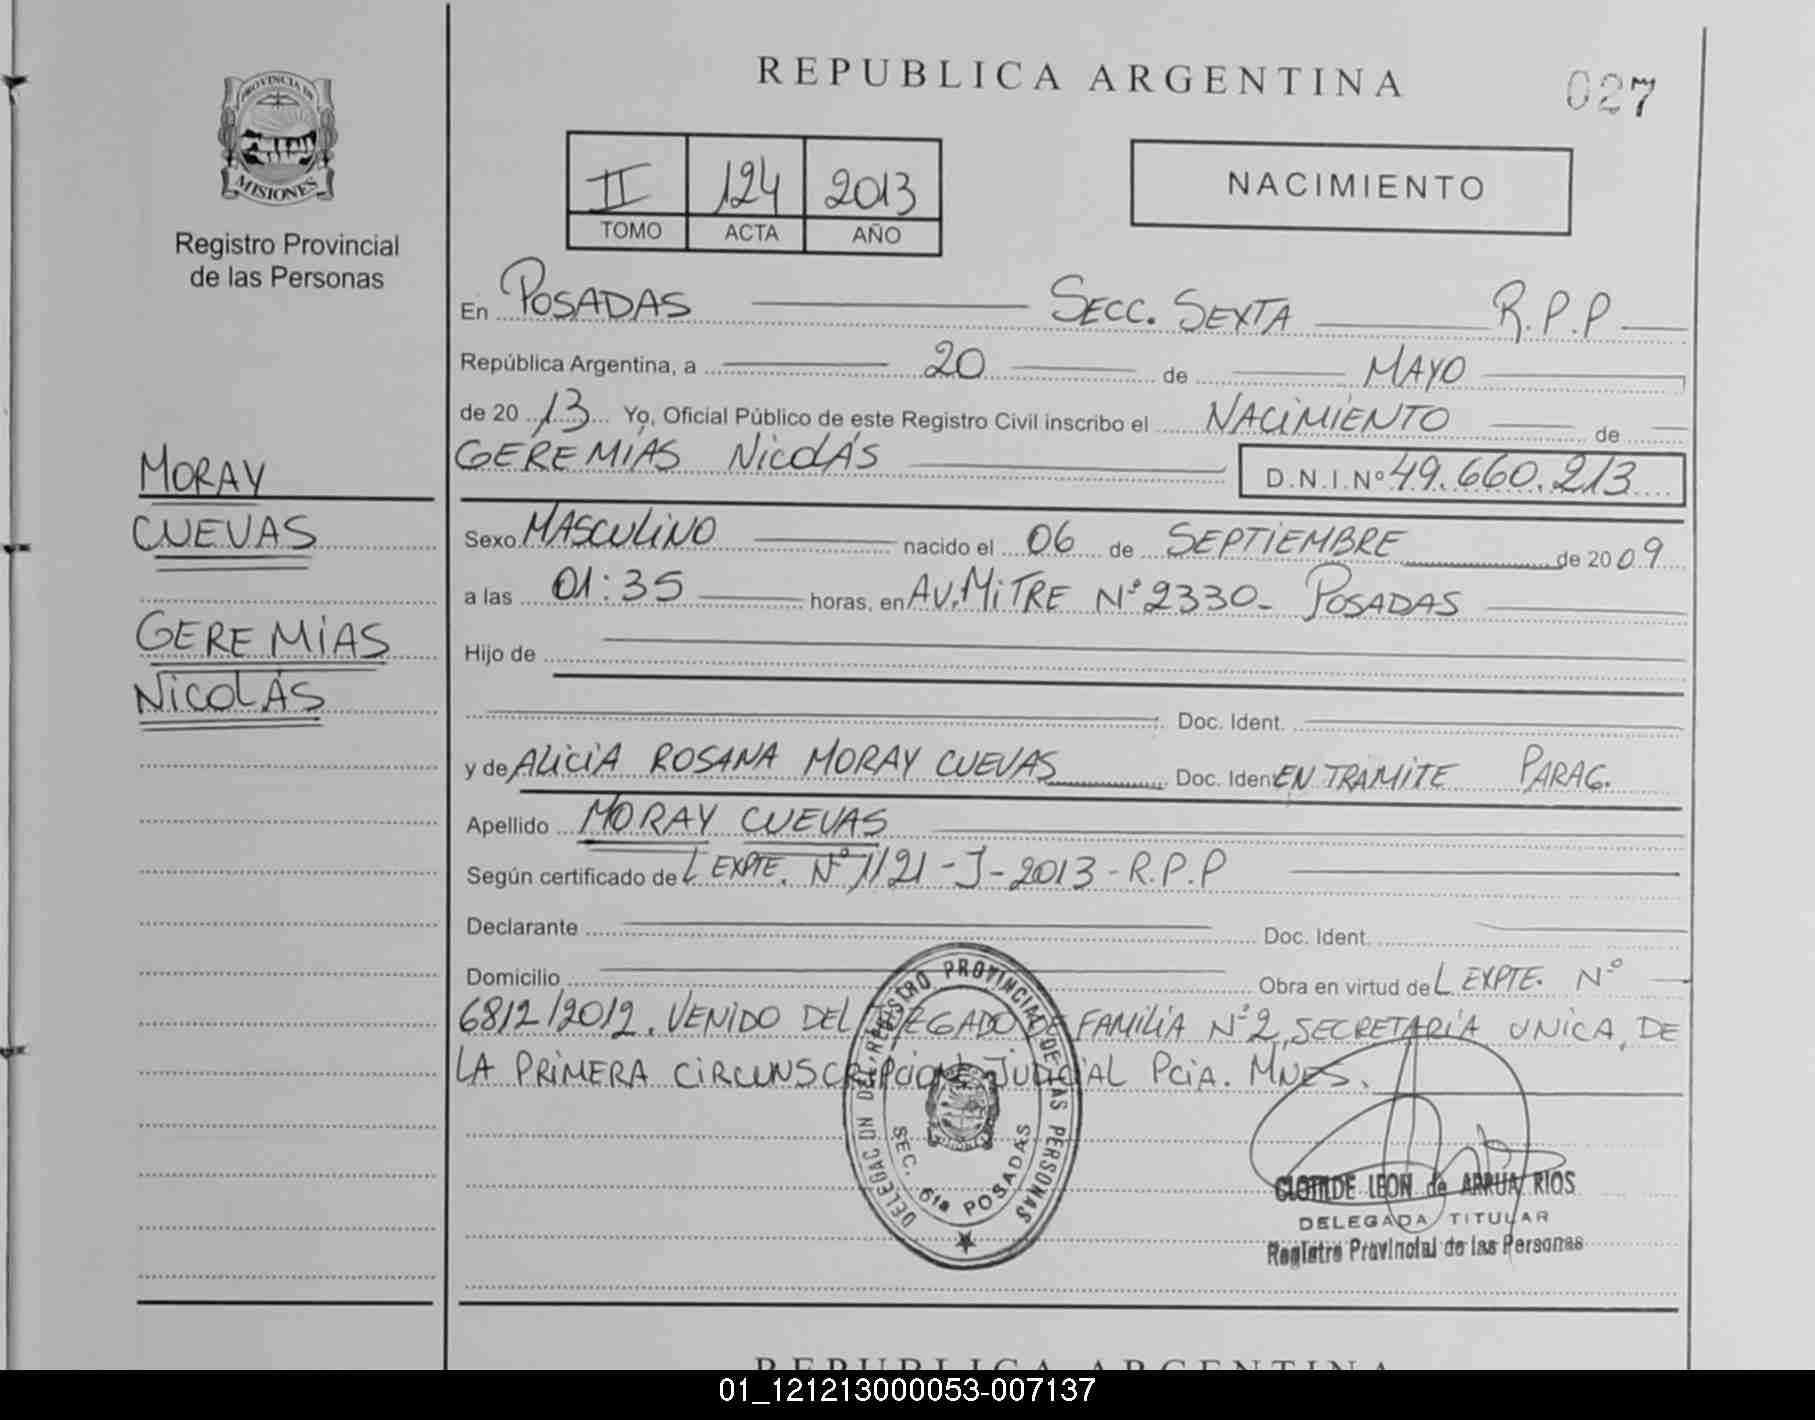 PROVINCIA DE
MISIONES
Registro Provincial
de las Personas
MORAY
CUEVAS
GEREMIAS
NICOLÁS
REPUBLICA ARGENTINA
027
II 124 2013
TOMO ACTA AÑO
NACIMIENTO
En POSADAS SECC. SEXTA R.P.P
República Argentina, a 20 de MAYO
de 20 13 Yo, Oficial Público de este Registro Civil inscribo el NACIMIENTO de
GEREMIAS NICOLÁS D.N.I.Nº 49.660.213
Sexo MASCULINO nacido el 06 de SEPTIEMBRE de 20 09
a las 01:35 horas, en AV. MITRE Nº 2330- POSADAS
Hijo de
Doc. Ident.
y de ALICIA ROSANA MORAY CUEVAS Doc. Iden EN TRAMITE PARAG.
Apellido MORAY CUEVAS
Según certificado de L EXPTE. Nº 1121-J-2013-R.P.P
Declarante Doc. Ident.
Domicilio Obra en virtud de L EXPTE. Nº
6812/2012. VENIDO DEL JUZGADO DE FAMILIA Nº2, SECRETARÍA UNICA, DE
LA PRIMERA CIRCUNSCRIPCION JUDICIAL PCIA. MNES.
DELEGACION DEL REGISTRO PROVINCIAL DE LAS PERSONAS
SEC. 6ta POSADAS
CLOTILDE LEON de ARRUA RIOS
DELEGADA TITULAR
Registro Provincial de las Personas
REPUBLICA ARGENTINA
01_121213000053-007137